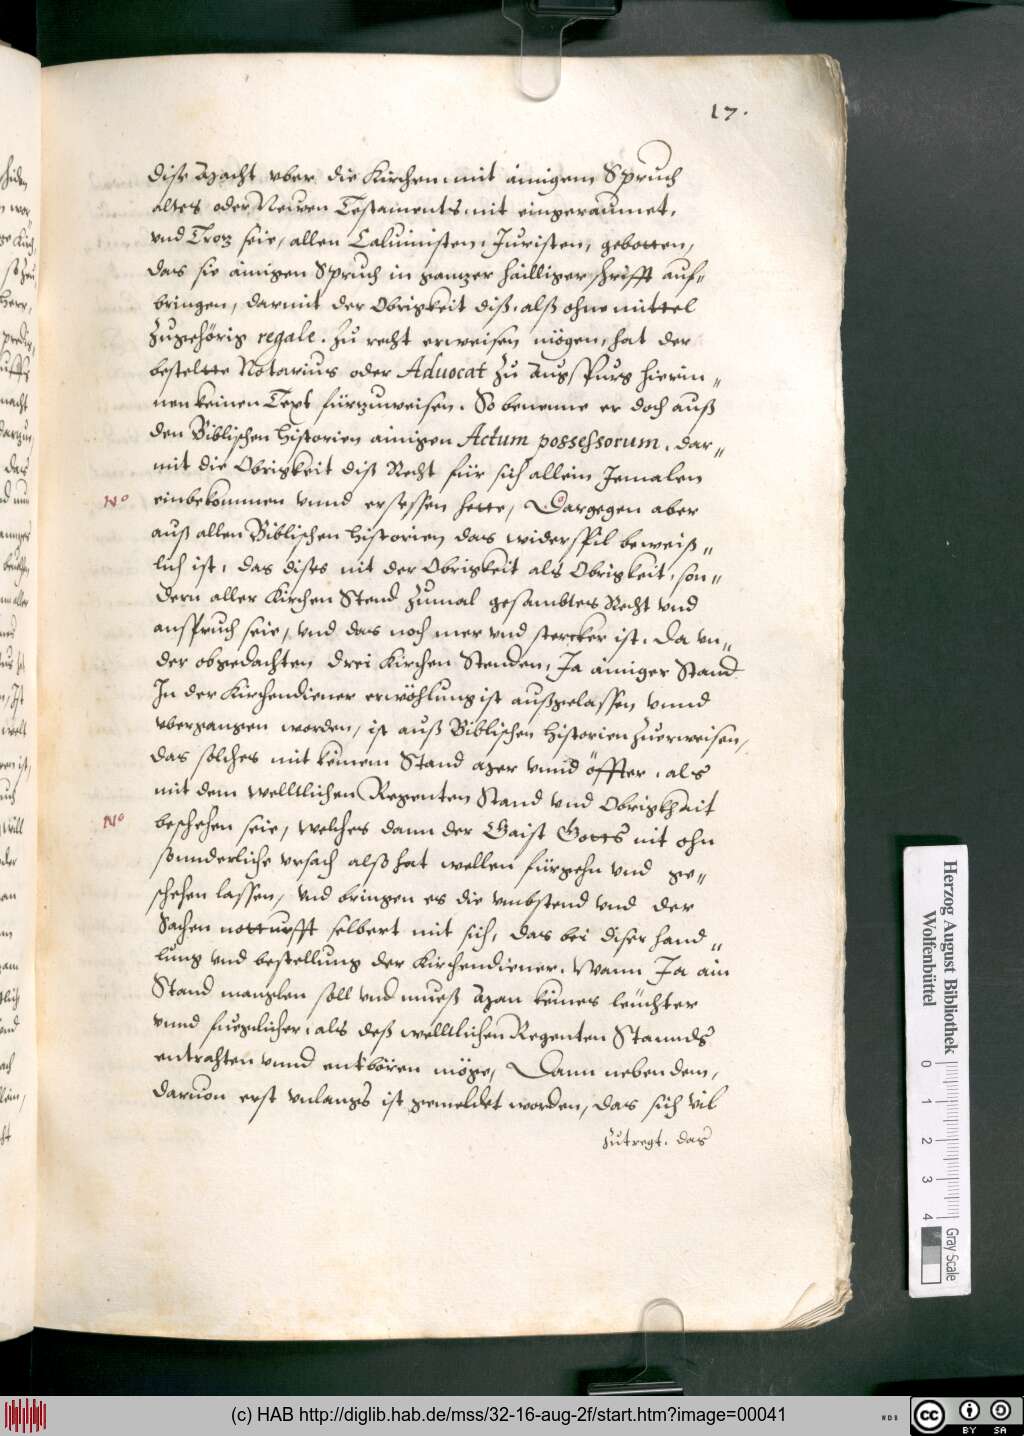 17.
dise Macht vber die Kirchen mit ainigem Spruch
altes oder Neuen Testaments mit eingeraumet,
vnd Troz seie, allen Caluinisten Juristen, gebotten,
das sie ainigen Spruch in ganzer häilliger schrifft auf„
bringen, darmit der Obrigkeit diß, alß ohne mittel
Zugehörig regale, Zu recht erweisen mögen, hat der
bestelte Notarius oder Aduocat Zu Augspurg hierin„
nen keinen Text fürzuweisen. So benenne er doch auß
den Biblischen Historien ainigen Actum possessorum, dar„
mit die Obrigkeit diß Recht für sich allein Jemalen
Nº
einbekommen vnnd ersessen hette, Dargegen aber
auß allen Biblischen Historien das widerspil beweiß„
lich ist, das dises nit der Obrigkeit als Obrigkeit, son„
dern aller Kirchen Stend Zumal gesambtes Recht vnd
anspruch seie, vnd das noch mer vnd stercker ist. Da vn„
der obgedachten drei Kirchen Stenden, Ja ainiger Stand
In der Kirchendiener erwöhlung ist außgelassen vnnd
vbergangen worden, ist auß Biblischen Historien Zuerweisen,
das solches mit keinem Stand mer vnnd öffter, als
mit dem welltlichen Regenten Stand vnd Obrigkhait
Nº
beschehen seie, welches dann der Gaist Gotts nit ohn
sonnderliche vrsach alß hat wellen fürgehn vnd ge„
schehen lassen, vnd bringen es die vmbstend vnd der
Sachen notturfft selbert mit sich, das bei diser hand„
lung vnd bestellung der Kirchendiener, Wann Ja ain
Stand manglen soll vnd mueß Man keines leüchter
vnnd fueglicher, als deß welltlichen Regenten Stannds
entrahten vnnd entbören möge, Dann neben dem,
daruon erst vnlangs ist gemeldet worden, das sich vil
Zutregt, das
Herzog August Bibliothek
Wolfenbüttel
0 1 2 3 4
Gray Scale
(c) HAB http://diglib.hab.de/mss/32-16-aug-2f/start.htm?image=00041
cc BY SA